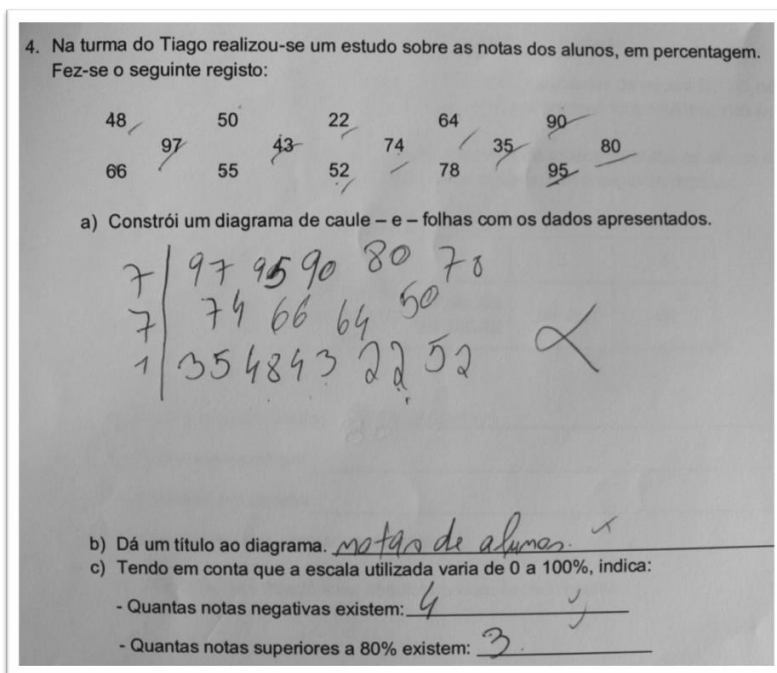 4. Na turma do Tiago realizou-se um estudo sobre as notas dos alunos, em percentagem.
Fez-se o seguinte registo:
48 50 22 64 90
97 43 74 35 80
66 55 52 78 95
a) Constrói um diagrama de caule – e – folhas com os dados apresentados.
7 | 97 95 90 80 78
7 | 74 66 64 50
1 | 35 48 43 22 52
b) Dá um título ao diagrama. notas de alunos.
c) Tendo em conta que a escala utilizada varia de 0 a 100%, indica:
- Quantas notas negativas existem: 4
- Quantas notas superiores a 80% existem: 3.